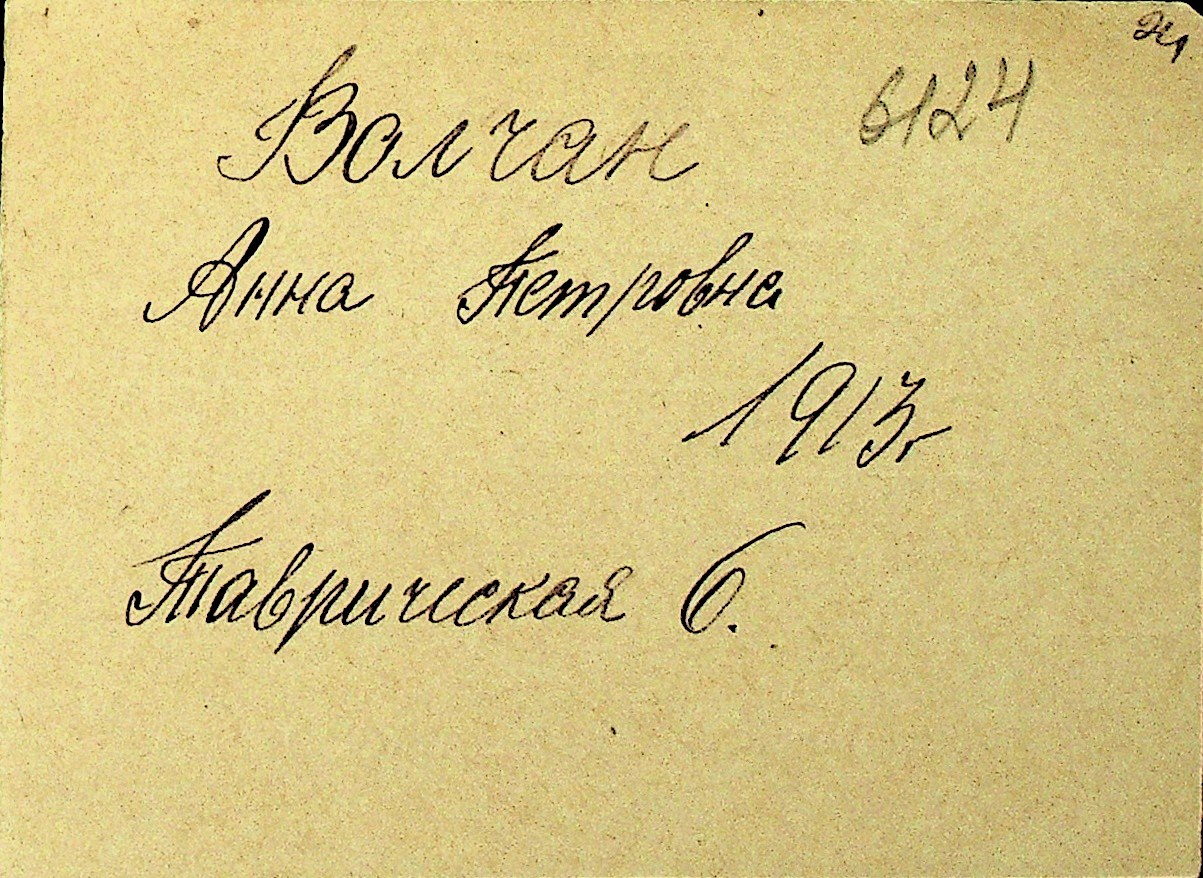 6124
Волчан
Анна Петровна
1913г
Таврическая 6.